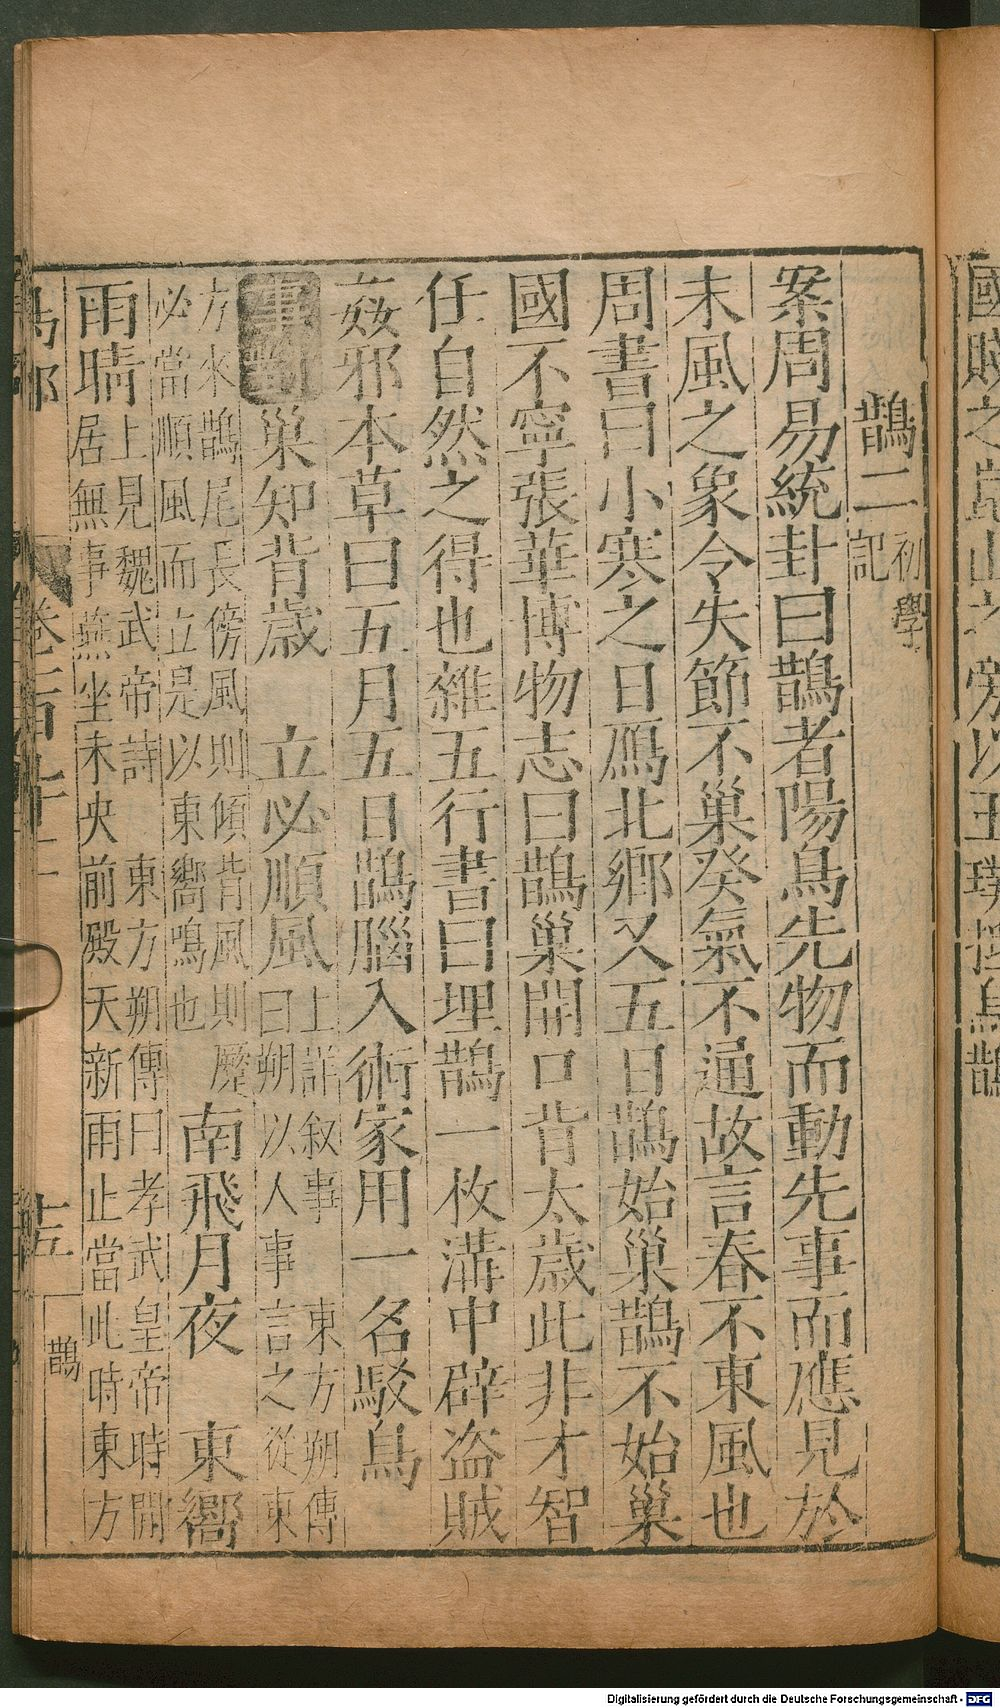 國
之
山之旁以玉璞
鳥鵲
鵲二初學記
案周易統卦曰鵲者陽鳥先物而動先事而應見於
未風之象令失節不巢癸氣不通故言春不東風也
周書曰小寒之日鴈北鄉又五日鵲始巢鵲不始巢
國不寧張華博物志曰鵲巢開口背太歲此非才智
任自然之得也雜五行書曰埋鵲一枚溝中辟盜賊
姦邪本草曰五月五日鵲腦入術家用一名駁鳥
事對巢知背歲 立必順風上詳叙事 東方朔傳
曰朔以人事言之從東
方來鵲尾長傍風則傾背風則蹷
必當順風而立是以東嚮鳴也
南飛月夜 東嚮
雨晴上見魏武帝詩 東方朔傳曰孝武皇帝時閒
居無事燕坐未央前殿天新雨止當此時東方
鳥部
卷二百十二
十五
鵲
Digitalisierung gefördert durch die Deutsche Forschungsgemeinschaft - DFG